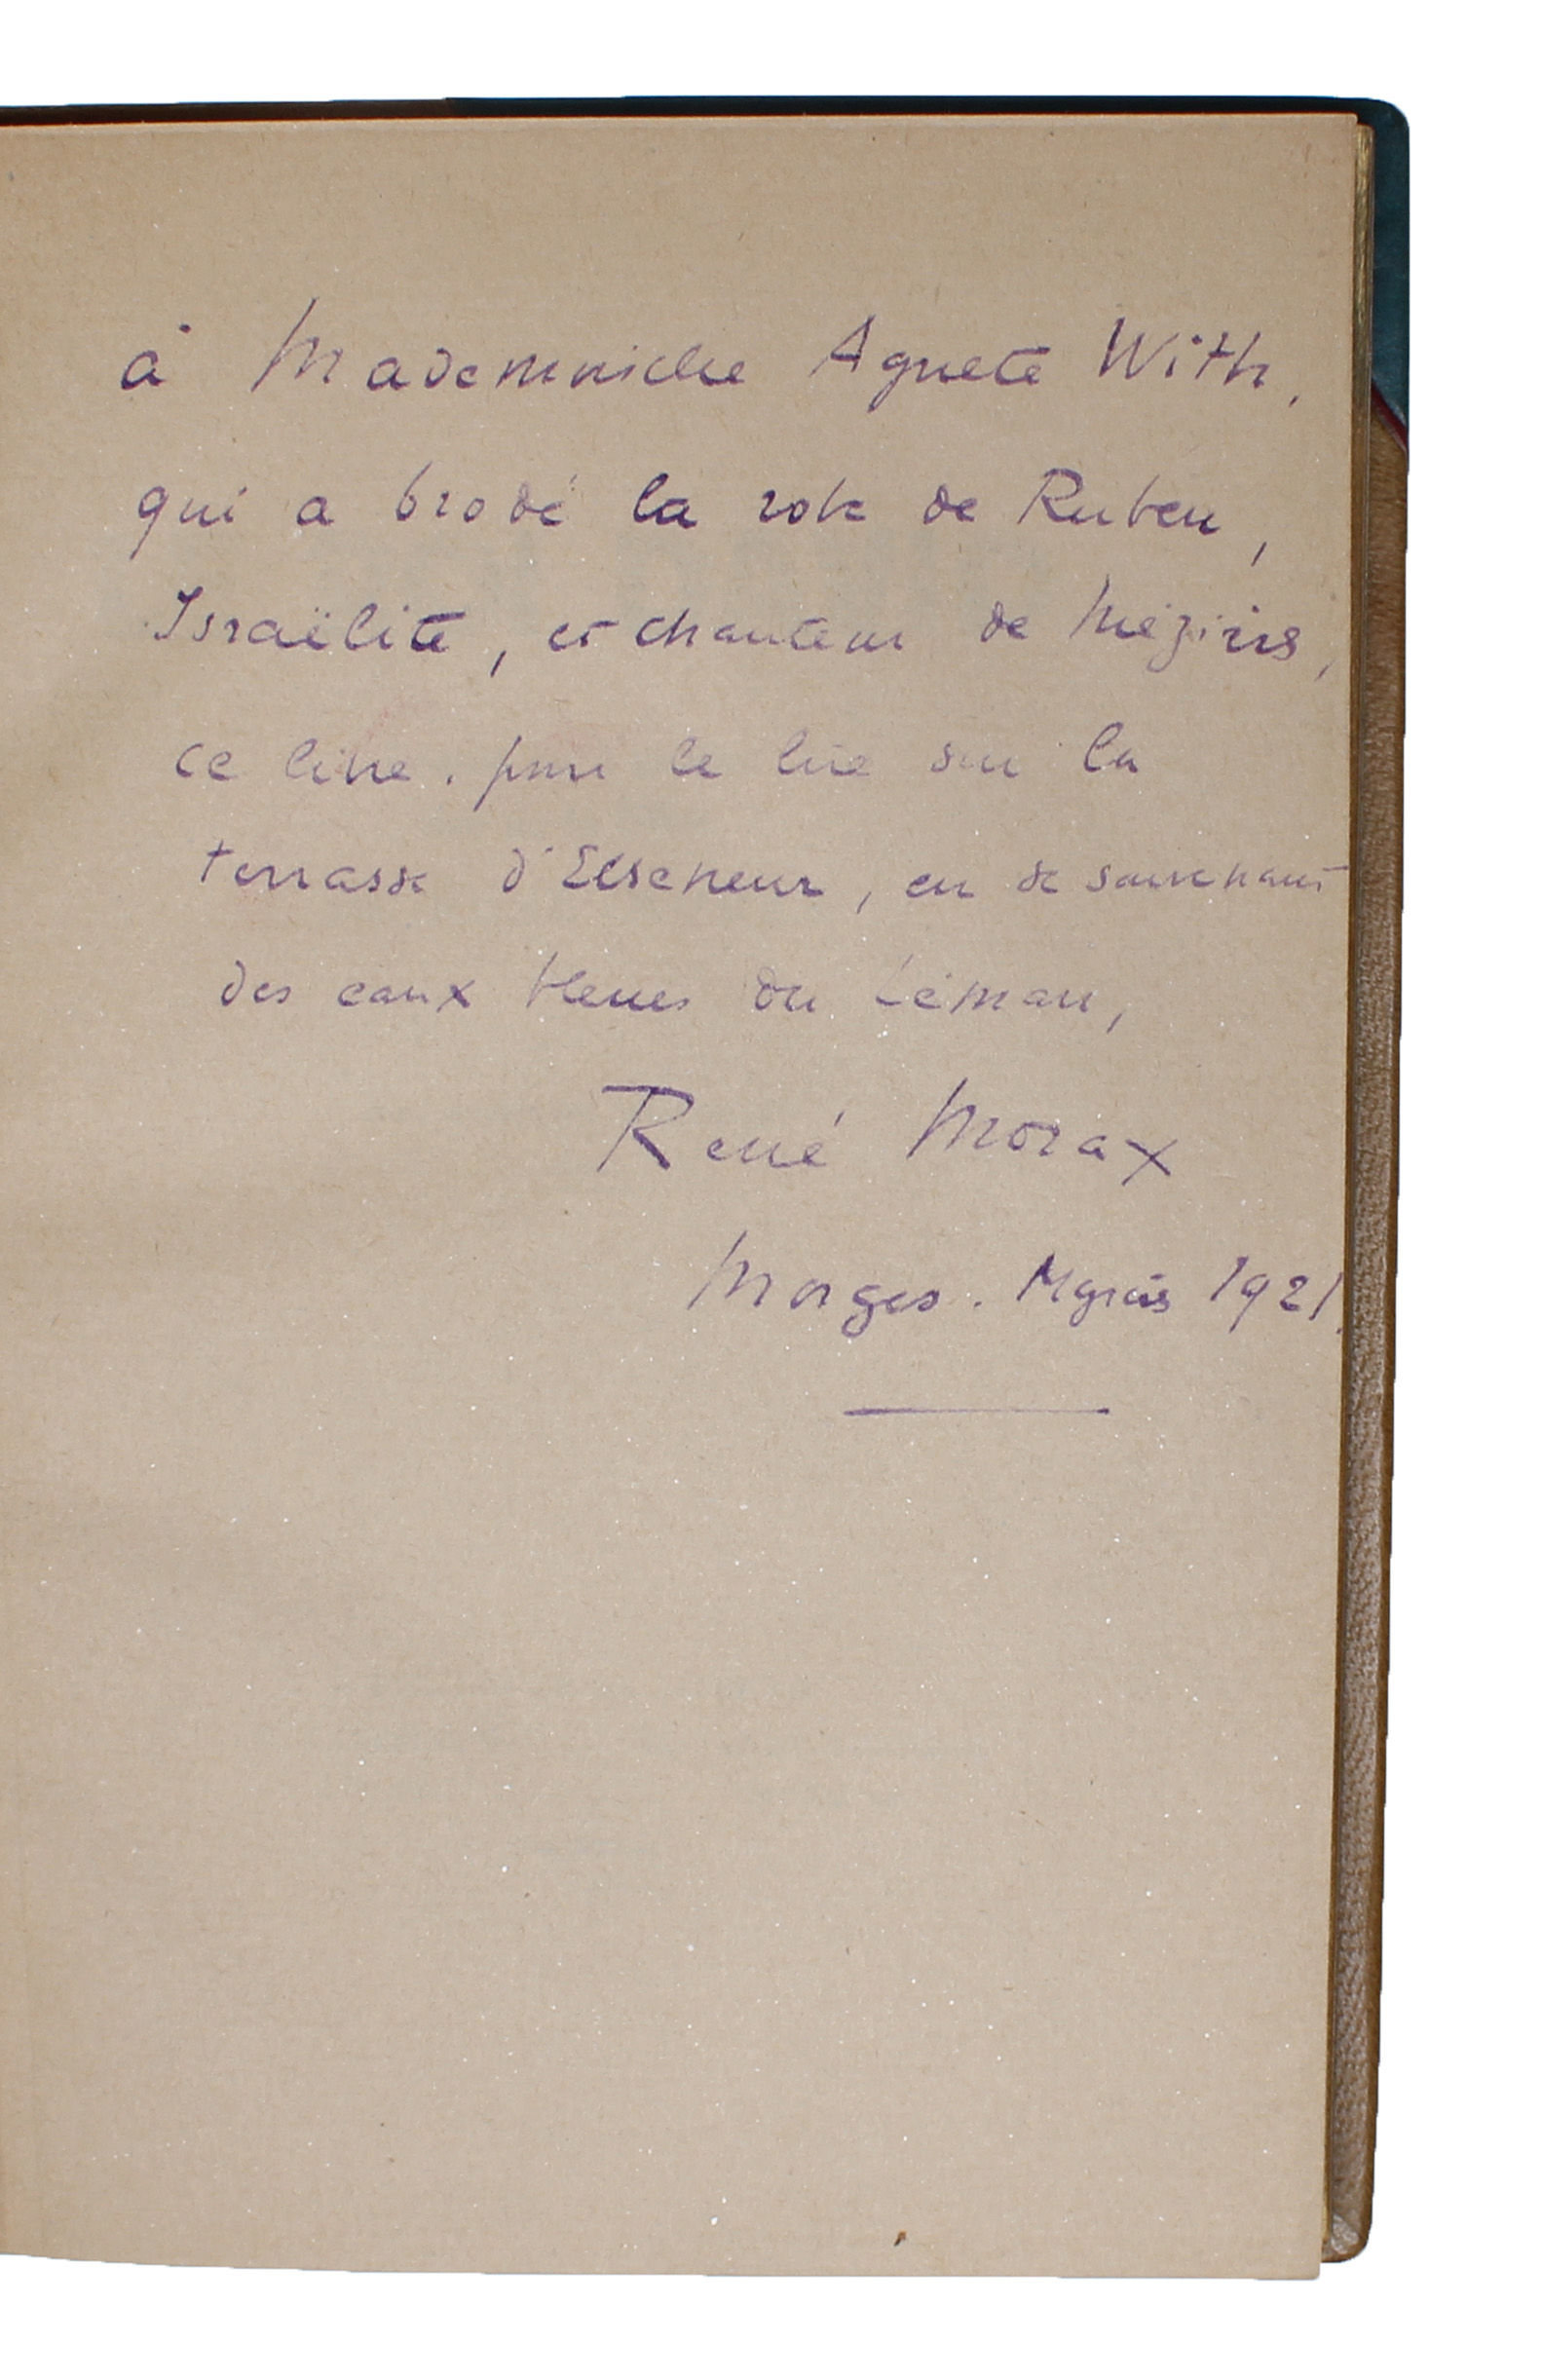 à Mademoiselle Agnete With,
qui a brodé la robe de Ruben,
Israëlite, et chanteur de Mézières,
ce livre. pour le lire sur la
terrasse d'Elseneur, en se souvenant
des eaux bleues du Léman,
René Morax
Morges. 1921.